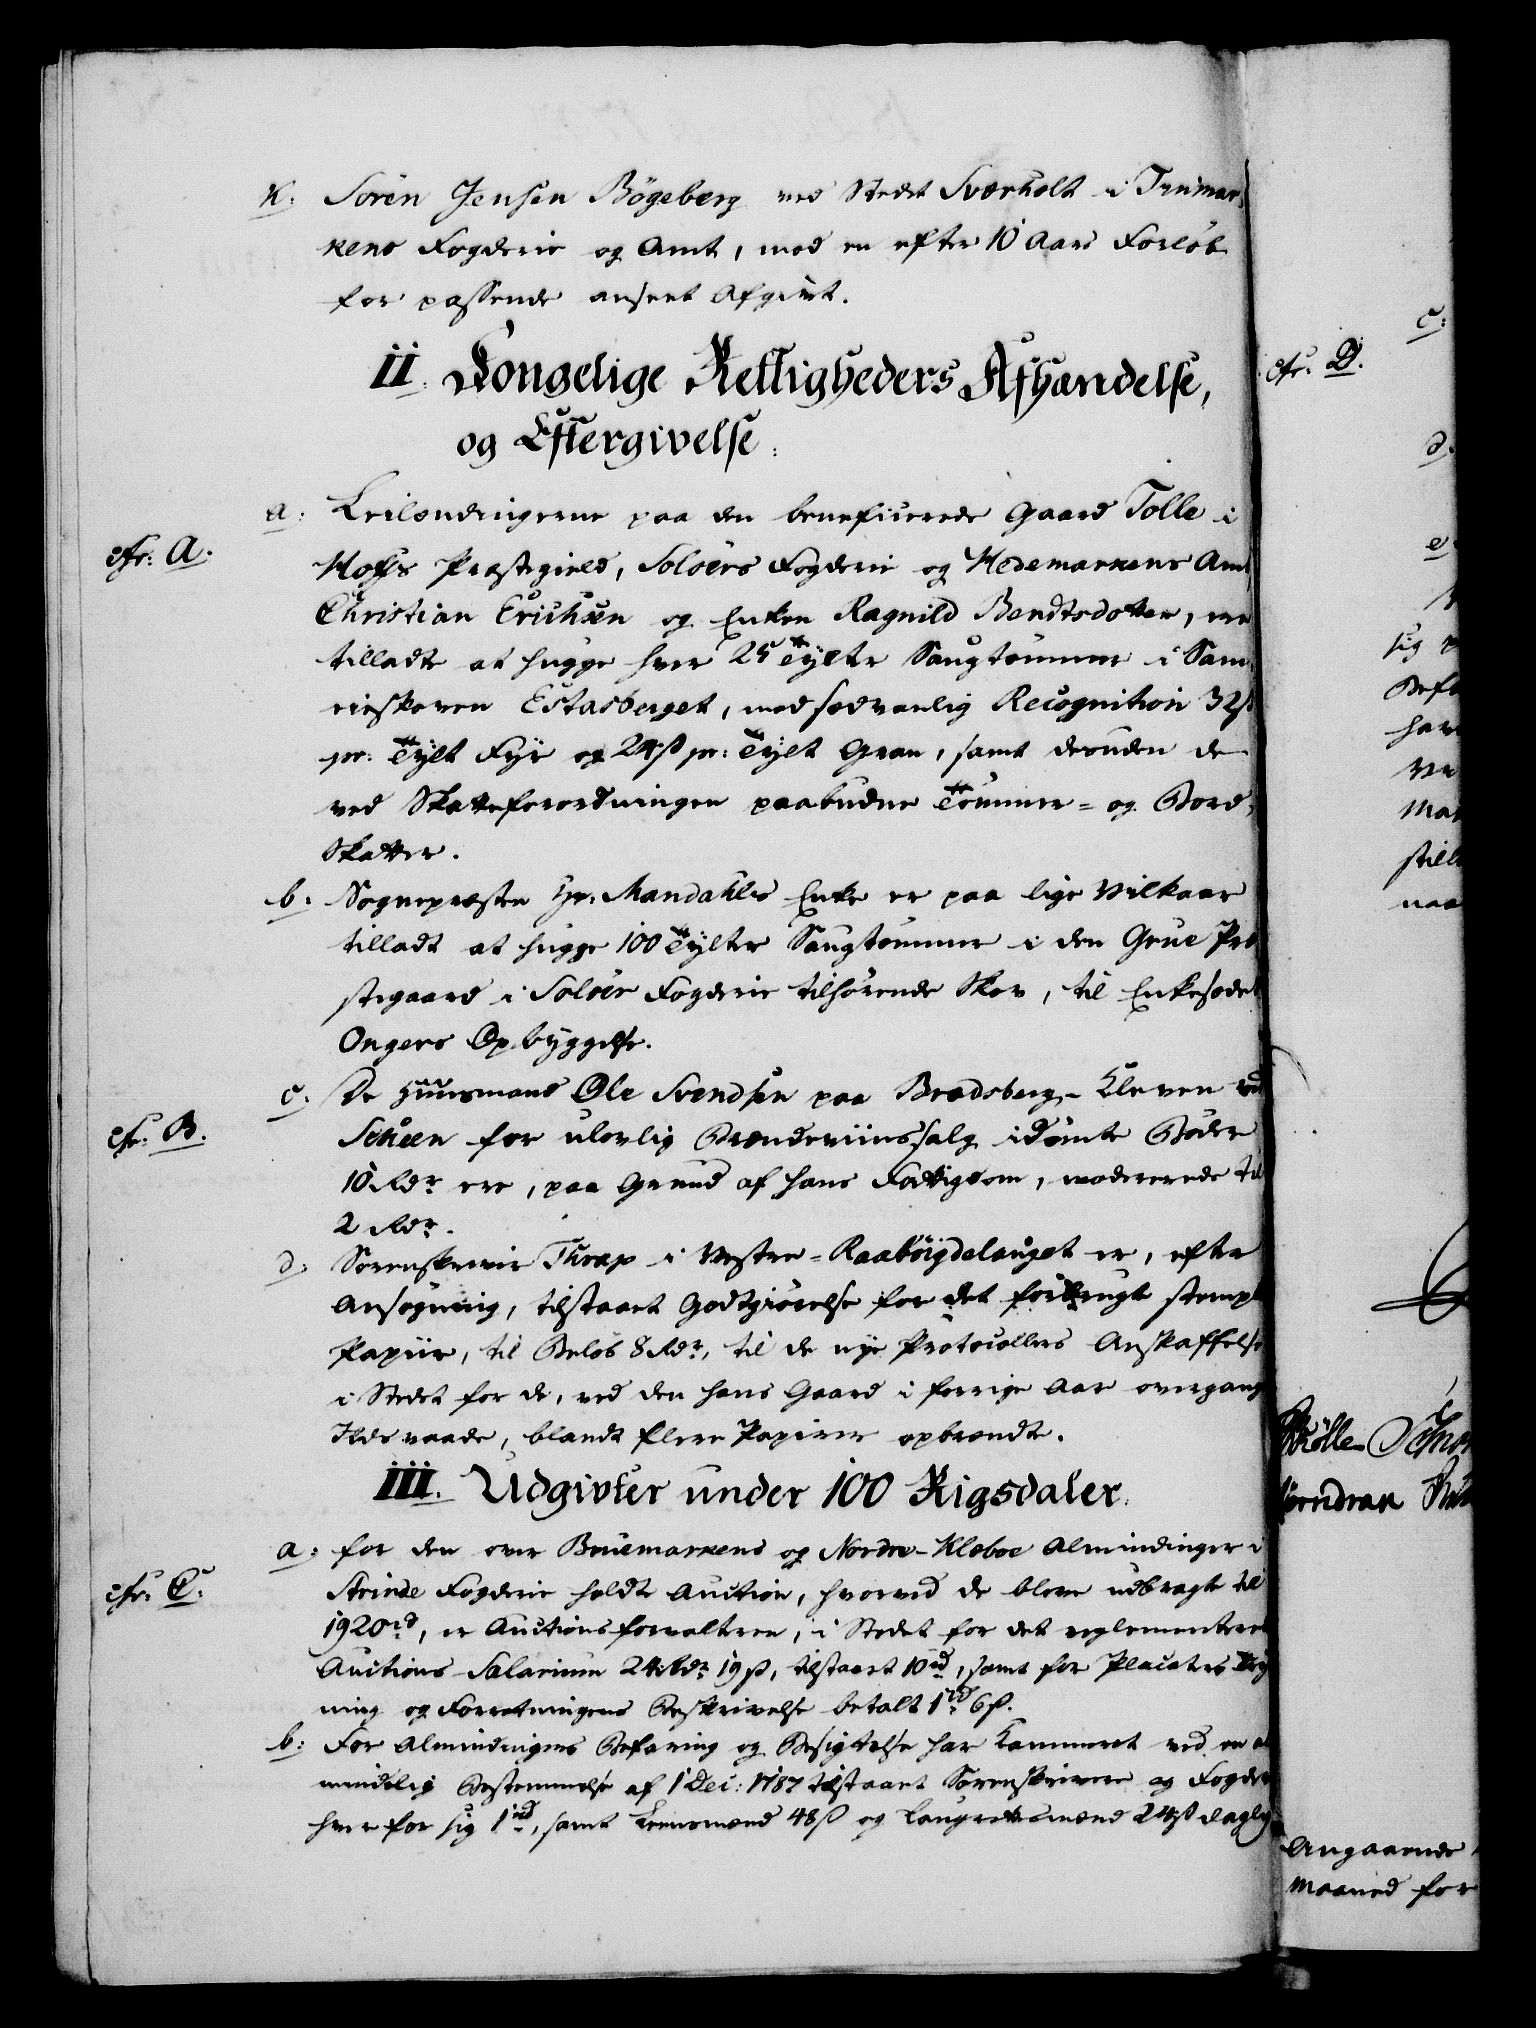 k. Sören Jensen Bögeberg ved Stedet Sværholt i Finmar-
kens Fogderie og Amt, mod en efter 10 Aars Forløb
for passende anseet Afgivt.
II. Kongelige Rettigheders Afhændelse,
og Eftergivelse.
a. Leilændingerne paa den beneficerede Gaard Tolle i
cfr: A.
Hoffs Præstegield, Soloers Fogderie og Hedemarkens Amt
Christian Erichsen og Enken Ragnild Bendtsdatter, ere
tilladte at hugge hver 25 Tylter Saugtømmer i Sam-
eieskoven Estasberget, mod sædvanlig Recognition 32 ß
pr: Tylt Fyr og 24 ß pr: Tylt Gran, samt desuden de
ved Skatteforordningen paabudne Tømmer- og Bord-
skatter.
b. Sognepræsten Hr. Mandahls Enke er paa lige Vilkaar
tilladt at hugge 100 Tylter Saugtømmer i den Grue Præ-
stegaard i Soloer Fogderie tilhørende Skov, til Enkesædet
Ongers Opbyggelse.
c. De Huusmand Ole Svendsen paa Bradsberg-Kleven ved
cfr: B.
Scheen for ulovlig Brændeviinssalg idømte Bøder
10 Rdr ere, paa Grund af hans Fattigdom, modererede til
2 Rdr.
d. Sorenskriver Thrap i Vestre-Raabøigdelauget er, efter
Ansøgning, tilstaaet Godtgiørelse for det forbrugt stempl
Papiir, til Beløb 8 Rdr, til de nye Protocollers Anskaffelse
i Stedet for de, ved den hans Gaard i forrige Aar overgang
Ildsvaade, blandt flere Papirer opbrændte.
III. Udgivter under 100 Rigsdaler.
a. for den over Bruemarkens og Nordre-Klæboe Almindinger i
cfr: C.
Strinde Fogderie holdte Auction, hvorved de bleve udbragte til
1920 rd, er Auctionsforvalteren, i Stedet for det reglementerede
Auctions-Salarium 24 Rdr 19 ß, tilstaaet 10 rd, samt for Placaters Tryk-
ning og Forretningens Beskrivelse betalt 1 rd 6 ß.
b. For Almindingers Befaring og Besigtelse har Kammeret ved en al-
mindelig Bestemmelse af 1 Dec: 1787 tilstaaet Sorenskrivere og Fogder
hver for sig 1 rd, samt Lensmænd 48 ß og Laugrettesmænd 24 ß daglig
cfr. D.
c.
d.
e
sig
Befa
have
Ma
still
naa
Angaaende
Maaned for